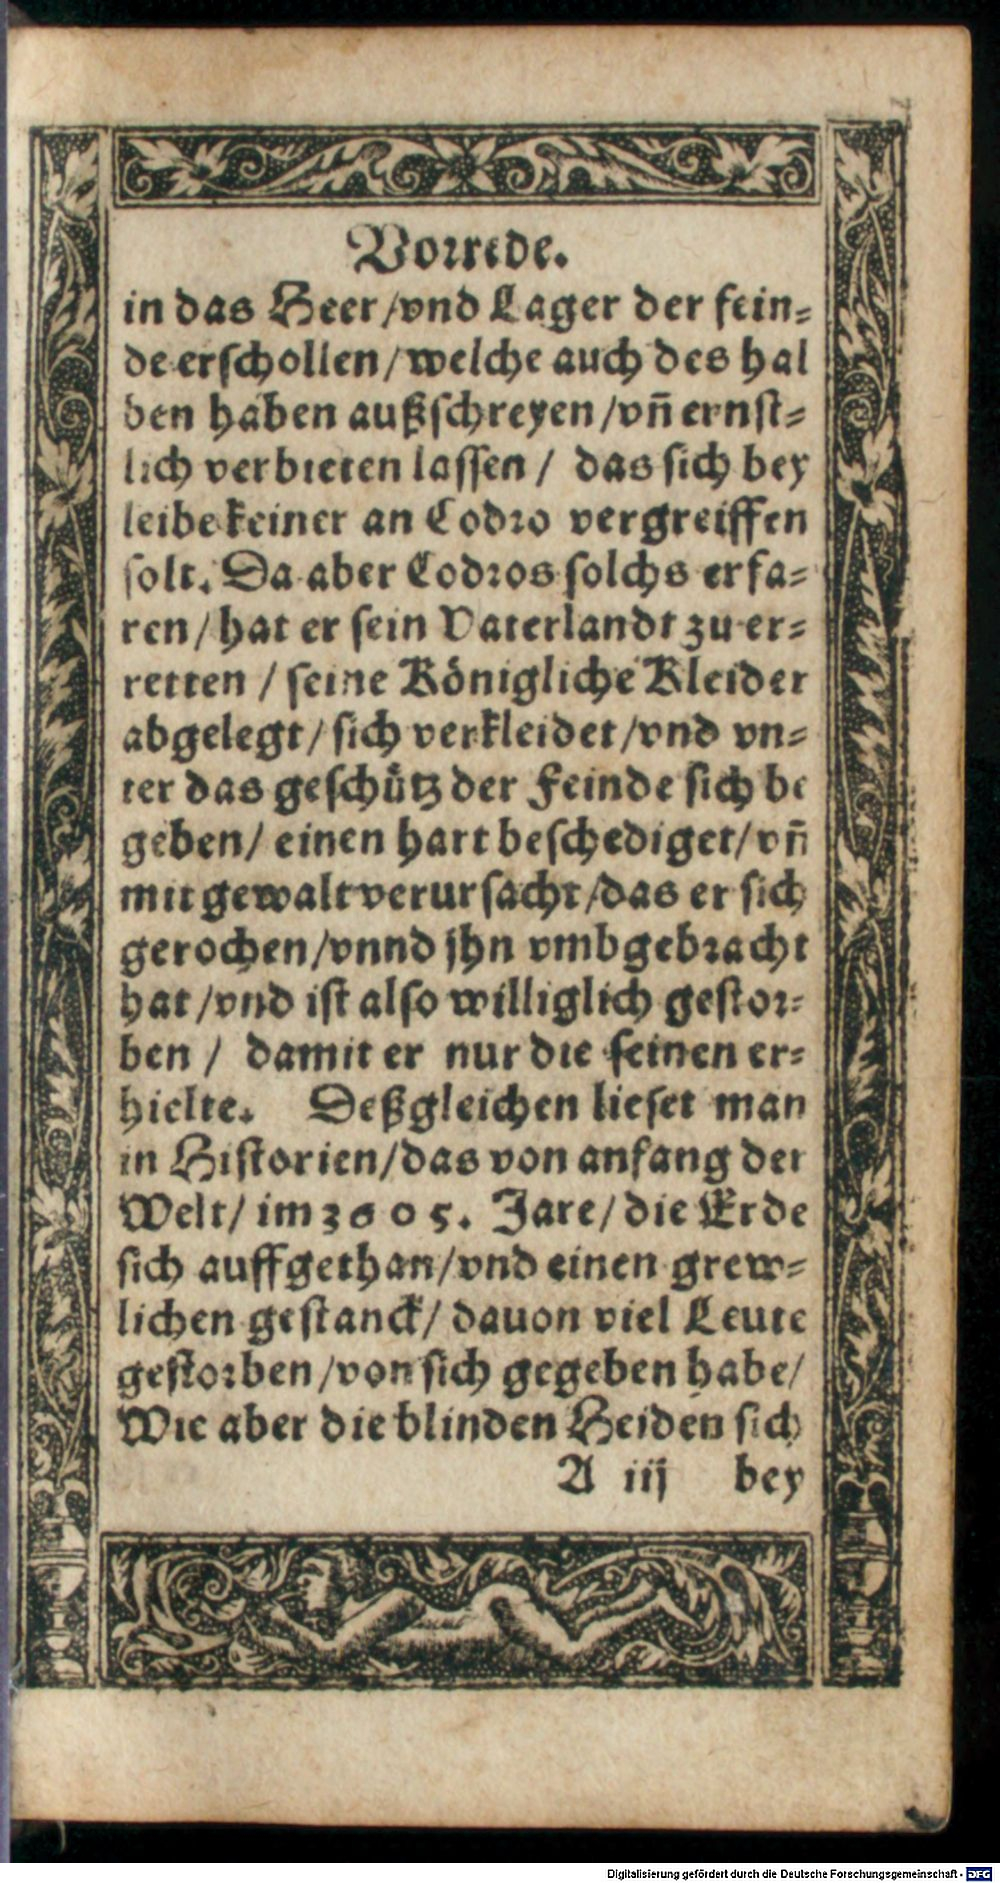 Vorrede.
in das Heer/vnd Lager der fein-
de erschollen/welche auch des hal
ben haben außschreyen/vñ ernst-
lich verbieten lassen/ das sich bey
leibe keiner an Codro vergreiffen
solt. Da aber Codros solchs erfa-
ren/hat er sein Vaterlandt zu er-
retten/seine Königliche Kleider
abgelegt/sich verkleidet/vnd vn-
ter das geschütz der Feinde sich be
geben/ einen hart beschediget/vñ
mit gewalt verursacht/das er sich
gerochen/vnnd jhn vmbgebracht
hat/vnd ist also williglich gestor-
ben/ damit er nur die seinen er-
hielte. Deßgleichen lieset man
in Historien/das von anfang der
Welt/ im 3605. Jare/die Erde
sich auffgethan/vnd einen grew-
lichen gestanck/ dauon viel Leute
gestorben/von sich gegeben habe/
Wie aber die blinden Heiden sich
A iij bey
Digitalisierung gefördert durch die Deutsche Forschungsgemeinschaft - DFG